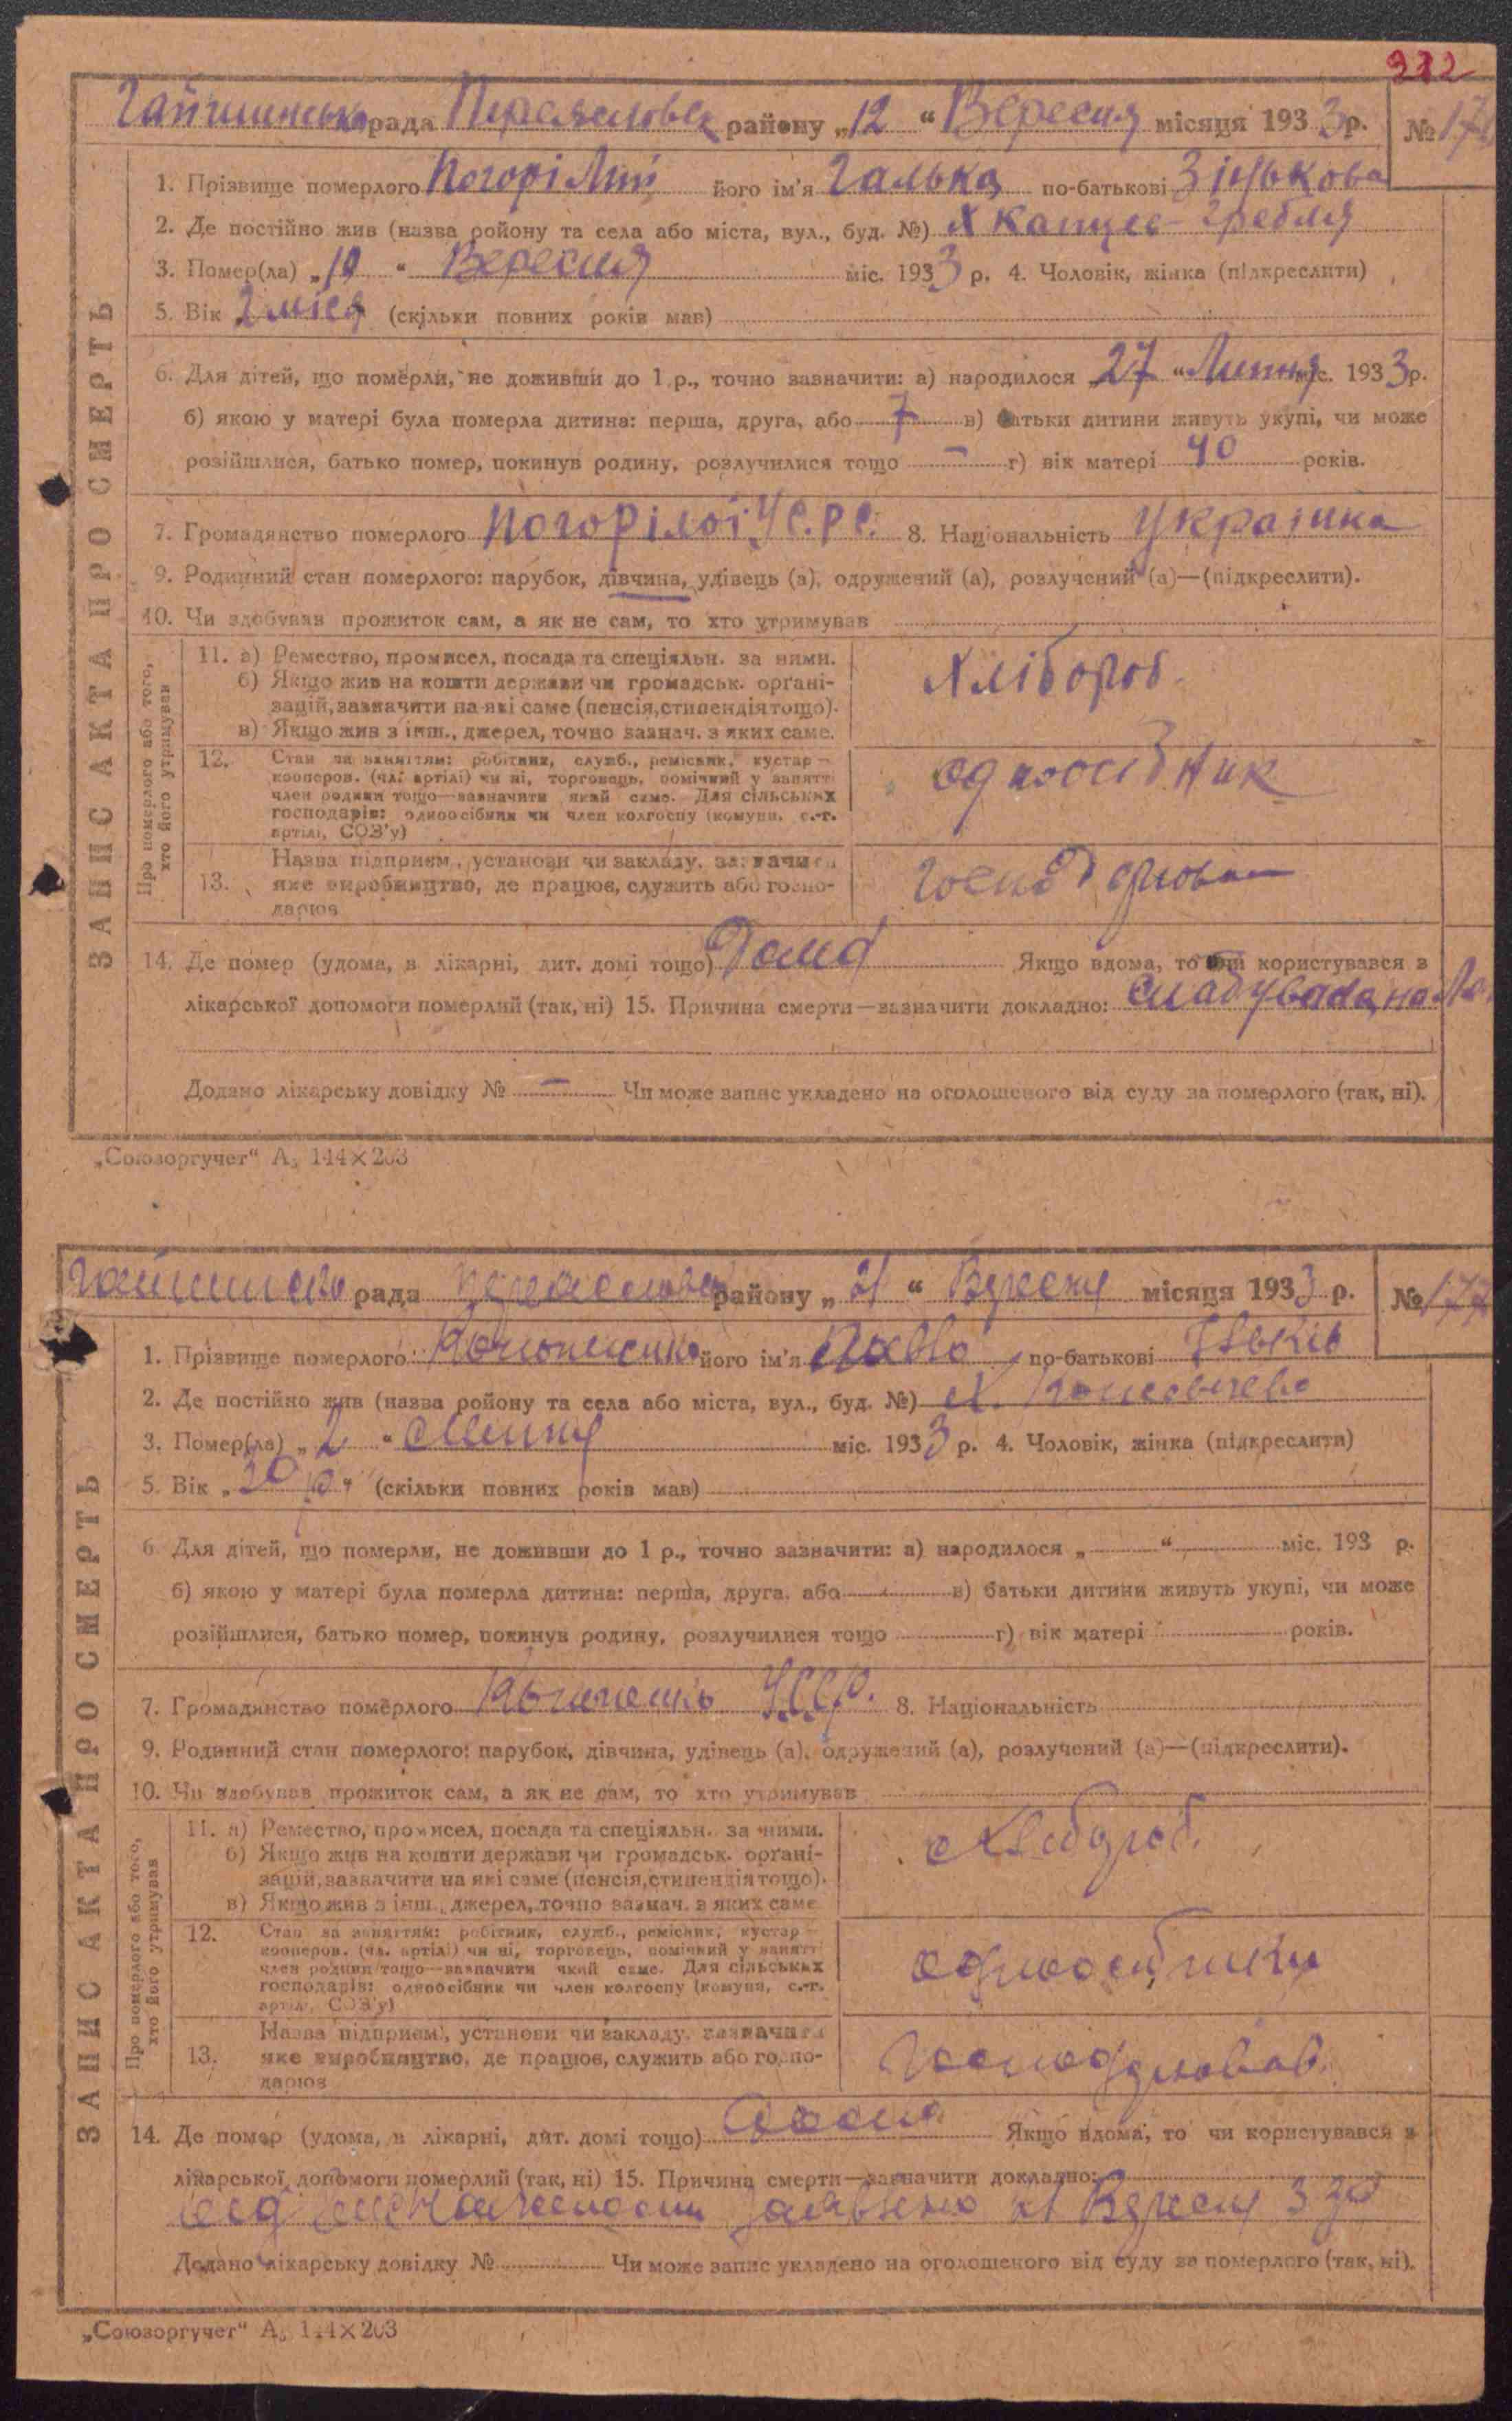 Гайшинська рада Переяславськ району „12“ Вересня місяця 1933 р. №17
1. Прізвище померлого Погорілий його ім'я Галька по-батькові Зінькова
2. Де постійно жив (назва ройону та села або міста, вул., буд. №) Х гребля
3. Помер(ла) „10“ Вересня міс. 1933 р. 4. Чоловік, жінка (підкреслити)
5. Вік 2 міся (скільки повних років мав)
6. Для дітей, що померли, не доживши до 1 р., точно зазначити: а) народилося „27“ Липня міс. 1933 р.
б) якою у матері була померла дитина: перша, друга, або 7 в) батьки дитини живуть укупі, чи може
розійшлися, батько помер, покинув родину, розлучилися тощо – г) вік матері 40 років.
7. Громадянство померлого Погорілої УСРС. 8. Національність Українка
9. Родинний стан померлого: парубок, дівчина, удівець (а), одружений (а), розлучений (а)—(підкреслити).
10. Чи здобував прожиток сам, а як не сам, то хто утримував
ЗАПИС АКТА ПРО СМЕРТЬ
Про померлого або того,
хто його утримував
11. а) Ремество, промисел, посада та спеціяльн. за ними.
б) Якщо жив на кошти держави чи громадськ. орґані-
зацій, зазначити на які саме (пенсія, стипендія тощо).
в) Якщо жив з інш., джерел, точно зазнач. з яких саме.
Хлібороб.
12. Стан за заняттям: робітник, служб., ремісник, кустар –
кооперов. (чл. артілі) чи ні, торговець, помічний у занятті
член родини тощо—зазначити який саме. Для сільських
господарів: одноосібник чи член колгоспу (комуни, с.-г.
артілі, СОЗ'у)
одноосібник
13. Назва підприєм., установи чи закладу, зазначити
яке виробництво, де працює, служить або госпо-
дарює
14. Де помер (удома, в лікарні, дит. домі тощо) Дома Якщо вдома, то чи користувався з
лікарської допомоги померлий (так, ні) 15. Причина смерти—зазначити докладно: слабувала на
Додано лікарську довідку № – Чи може запис укладено на оголошеного від суду за померлого (так, ні).
„Союзоргучет“ А₅ 144×203
рада району „21“ Вересня місяця 1933 р. №177
1. Прізвище померлого його ім'я Павло по-батькові
2. Де постійно жив (назва ройону та села або міста, вул., буд. №) Х.
3. Помер(ла) „2“ міс. 1933 р. 4. Чоловік, жінка (підкреслити)
5. Вік „ “ (скільки повних років мав)
6. Для дітей, що померли, не доживши до 1 р., точно зазначити: а) народилося „ “ міс. 193 р.
б) якою у матері була померла дитина: перша, друга, або в) батьки дитини живуть укупі, чи може
розійшлися, батько помер, покинув родину, розлучилися тощо г) вік матері років.
7. Громадянство померлого УССР. 8. Національність
9. Родинний стан померлого: парубок, дівчина, удівець (а), одружений (а), розлучений (а)—(підкреслити).
10. Чи здобував прожиток сам, а як не сам, то хто утримував
ЗАПИС АКТА ПРО СМЕРТЬ
Про померлого або того,
хто його утримував
11. а) Ремество, промисел, посада та спеціяльн. за ними.
б) Якщо жив на кошти держави чи громадськ. орґані-
зацій, зазначити на які саме (пенсія, стипендія тощо).
в) Якщо жив з інш., джерел, точно зазнач. з яких саме
12. Стан за заняттям: робітник, служб., ремісник, кустар –
кооперов. (чл. артілі) чи ні, торговець, помічний у занятті
член родини тощо—зазначити який саме. Для сільських
господарів: одноосібник чи член колгоспу (комуни, с.-г.
артілі, СОЗ'у)
13. Назва підприєм., установи чи закладу, зазначити
яке виробництво, де працює, служить або госпо-
дарює
господарював.
14. Де помер (удома, в лікарні, дит. домі тощо) Дома Якщо вдома, то чи користувався з
лікарської допомоги померлий (так, ні) 15. Причина смерти—зазначити докладно:
від заявлено 21 Вересня
Додано лікарську довідку № Чи може запис укладено на оголошеного від суду за померлого (так, ні).
„Союзоргучет“ А₅ 144×203